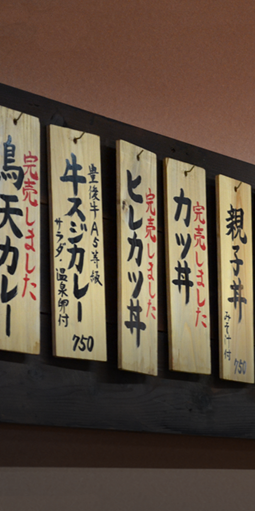 親子丼
みそ汁付
750
完売しました
カツ丼
完売しました
ヒレカツ丼
豊後牛A5等級
牛スジカレー
サラダ・温泉卵付
750
完売しました
鳥天カレー